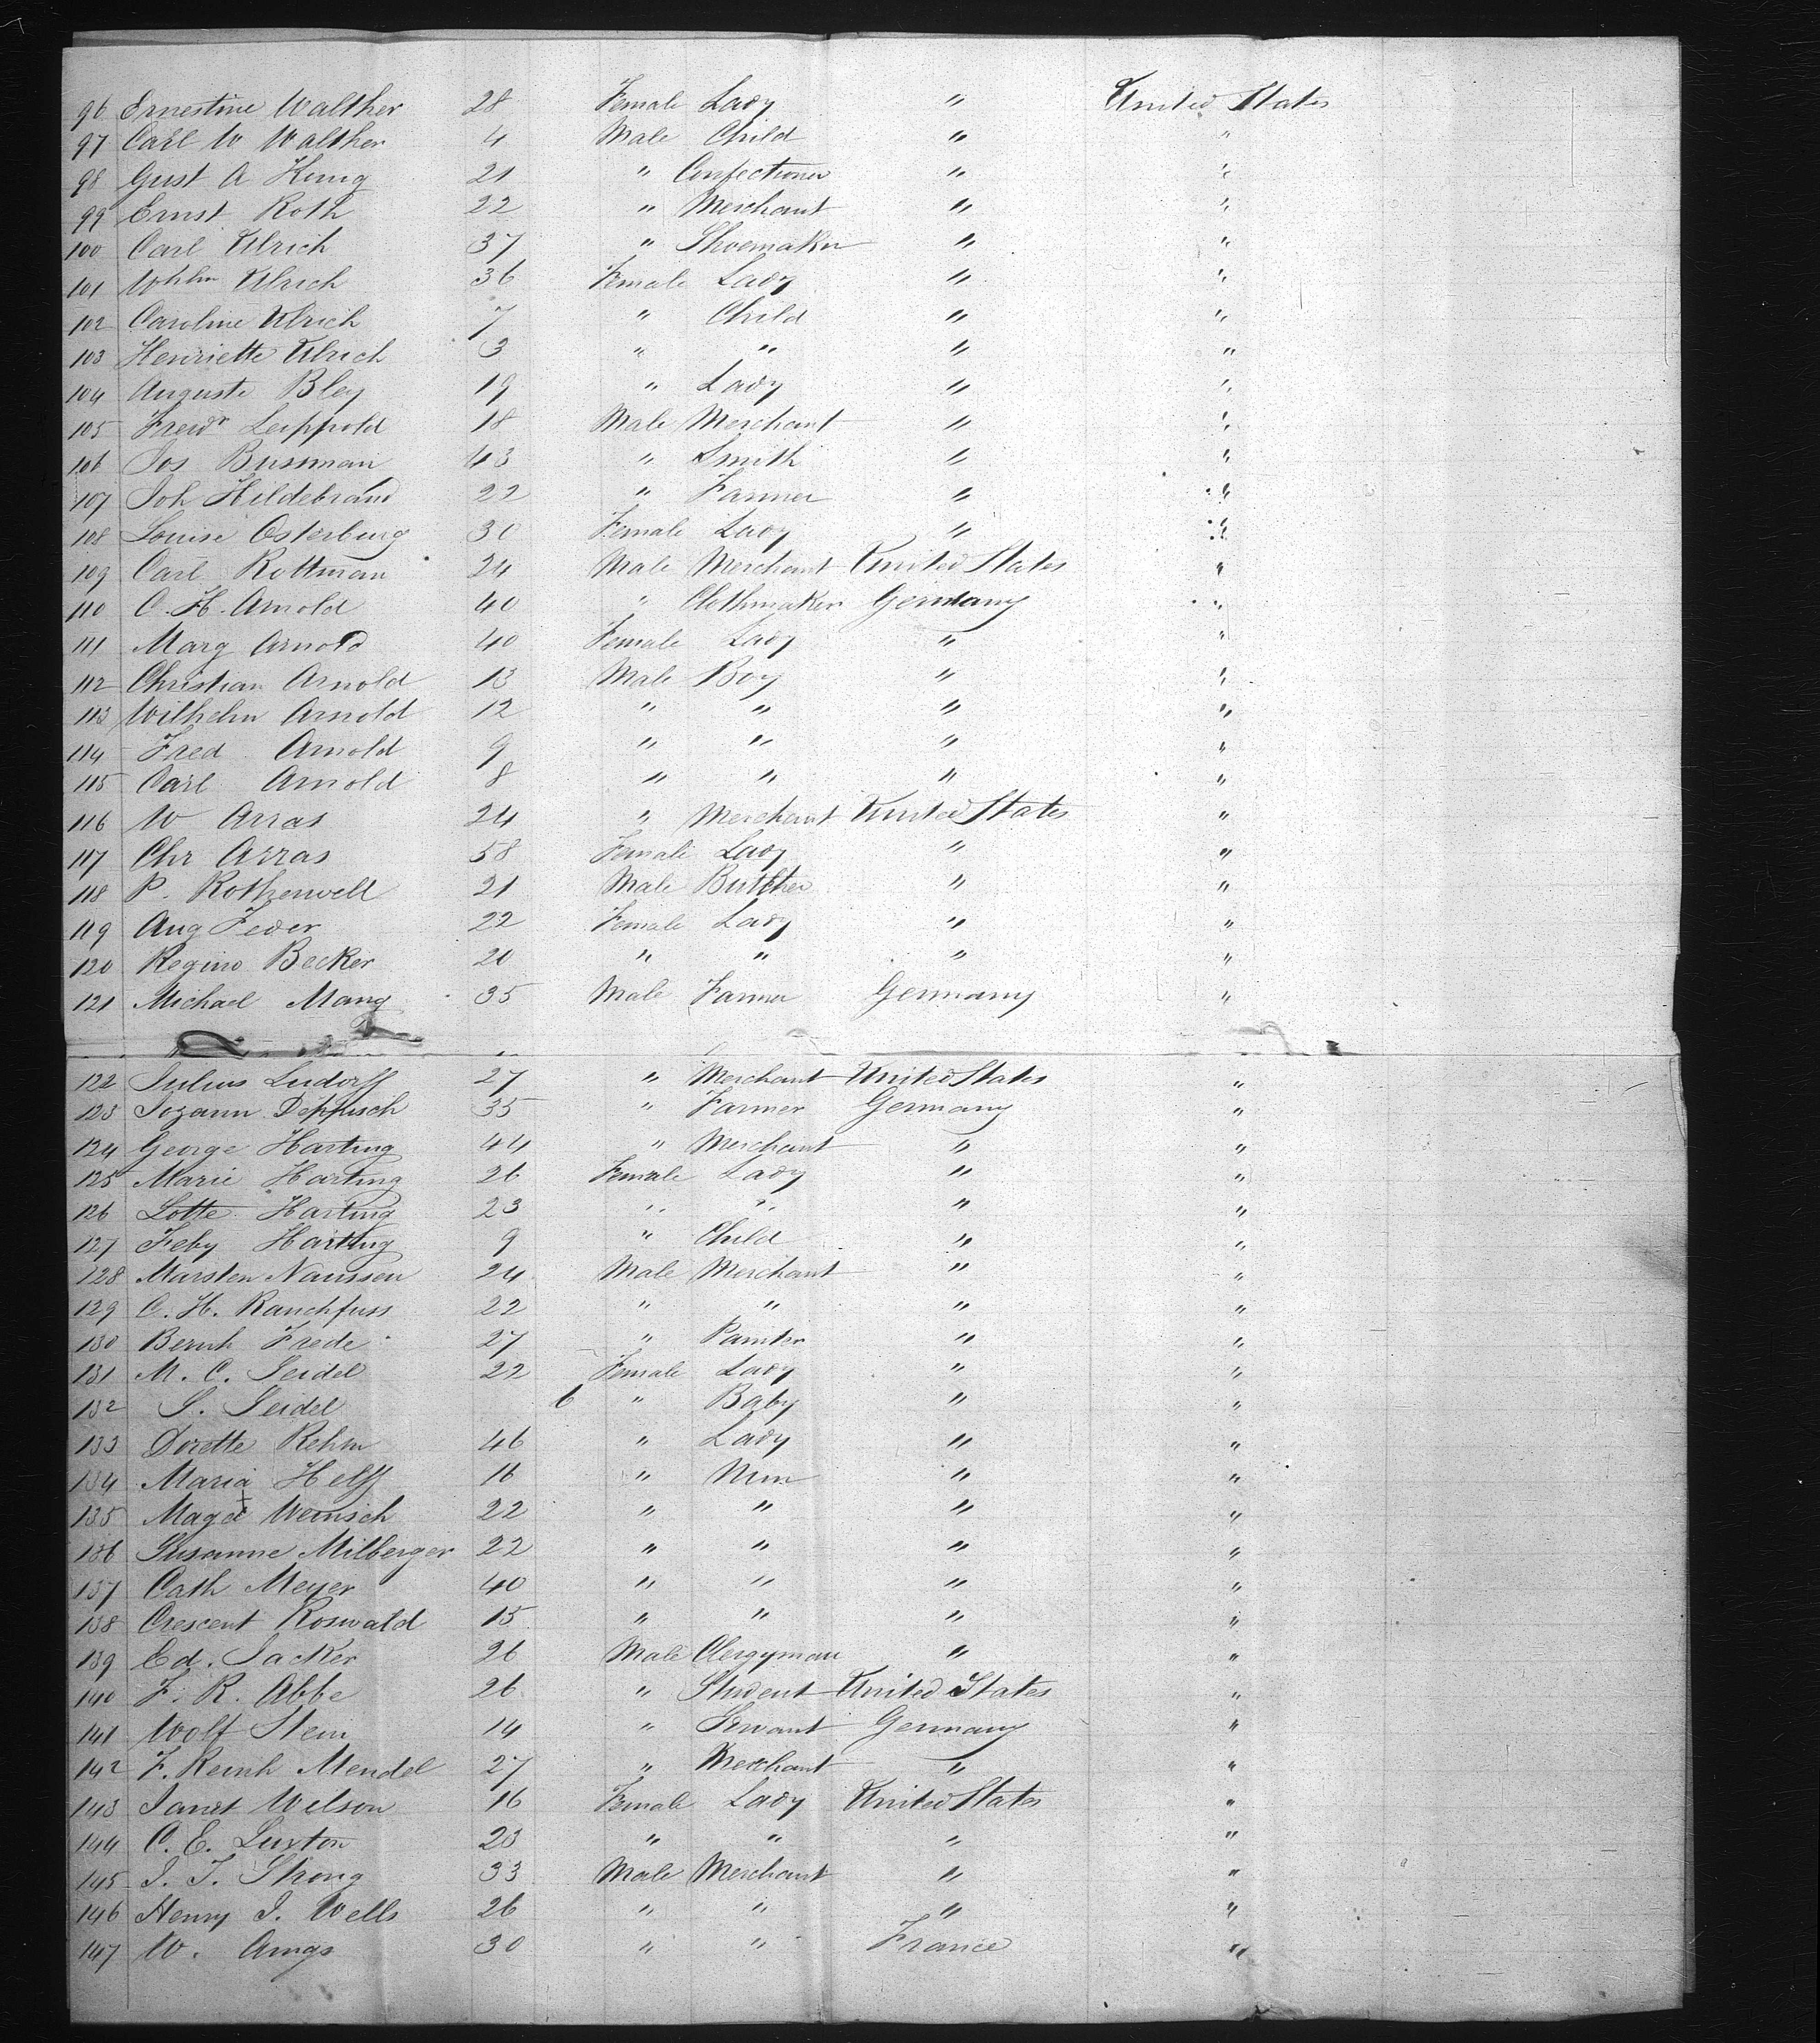 96 Ernestine Walther 28 Female Lady " United States
97 Carl W Walther 4 Male Child " "
98 Gust A Konig 21 " Confectioner " "
99 Ernst Roth 22 " Merchant " "
100 Carl Ulrich 37 " Shoemaker " "
101 Whlm Ulrich 36 Female Lady " "
102 Caroline Ulrich 7 " Child " "
103 Henriette Ulrich 3 " " " "
104 Auguste Bley 19 " Lady " "
105 Fried Leippold 18 Male Merchant " "
106 Jos Bussman 43 " Smith " "
107 Joh Hildebrand 22 " Farmer " "
108 Louise Osterburg 30 Female Lady " "
109 Carl Rottman 24 Male Merchant United States "
110 C. H. Arnold 40 " Clothmaker Germany "
111 Marg Arnold 40 Female Lady " "
112 Christian Arnold 13 Male Boy " "
113 Wilhelm Arnold 12 " " " "
114 Fred Arnold 9 " " " "
115 Carl Arnold 8 " " " "
116 W Arras 24 " Merchant United States "
117 Chr Arras 58 Female Lady " "
118 P. Rothenwell 21 Male Butcher " "
119 Aug Feder 22 Female Lady " "
120 Regine Becker 20 " " " "
121 Michael Mang 35 Male Farmer Germany "
122 Julius Ludorff 27 " Merchant United States "
123 Jozann Deppisch 35 " Farmer Germany "
124 George Harting 44 " Merchant " "
125 Marie Harting 26 Female Lady " "
126 Lotte Harting 23 " " " "
127 Feby Harting 9 " Child " "
128 Marsten Naussen 24 Male Merchant " "
129 C. H. Rauchfuss 22 " " " "
130 Bernh Frede 27 " Painter " "
131 M. C. Seidel 22 Female Lady " "
132 S. Seidel 6 " Baby " "
133 Dorette Rehm 46 " Lady " "
134 Maria Helff 16 " Nun " "
135 Magd Wernsch 22 " " " "
136 Susanne Milberger 22 " " " "
137 Cath Meyer 40 " " " "
138 Crescent Roswald 15 " " " "
139 Ed. Jacker 26 Male Clergyman " "
140 F. R. Abbe 26 " Student United States "
141 Wolf Stein 14 " Servant Germany "
142 F. Reinh Mendel 27 " Merchant " "
143 Janet Welson 16 Female Lady United States "
144 C. E. Luxton 23 " " " "
145 J. T. Strong 33 Male Merchant " "
146 Henry J. Wells 26 " " " "
147 W. 30 " " France "